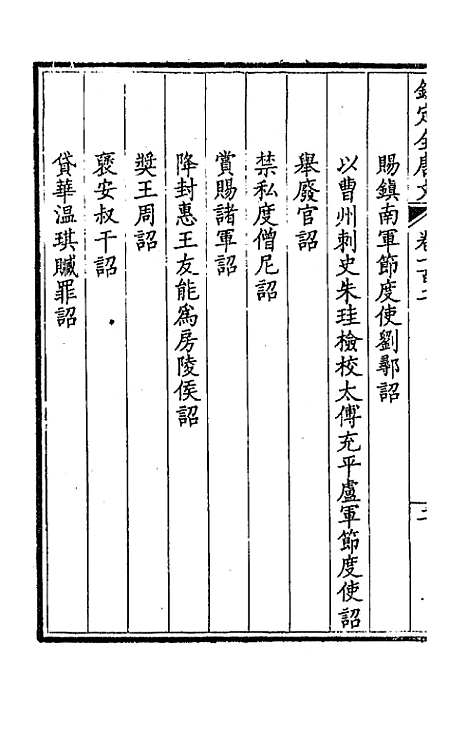 欽定全唐文 卷一百二 二
賜鎮南軍節度使劉鄩詔
以曹州刺史朱珪檢校太傅充平盧軍節度使詔
舉廢官詔
禁私度僧尼詔
賞賜諸軍詔
降封惠王友能爲房陵侯詔
奬王周詔
襃安叔干詔
貸華温琪贓罪詔